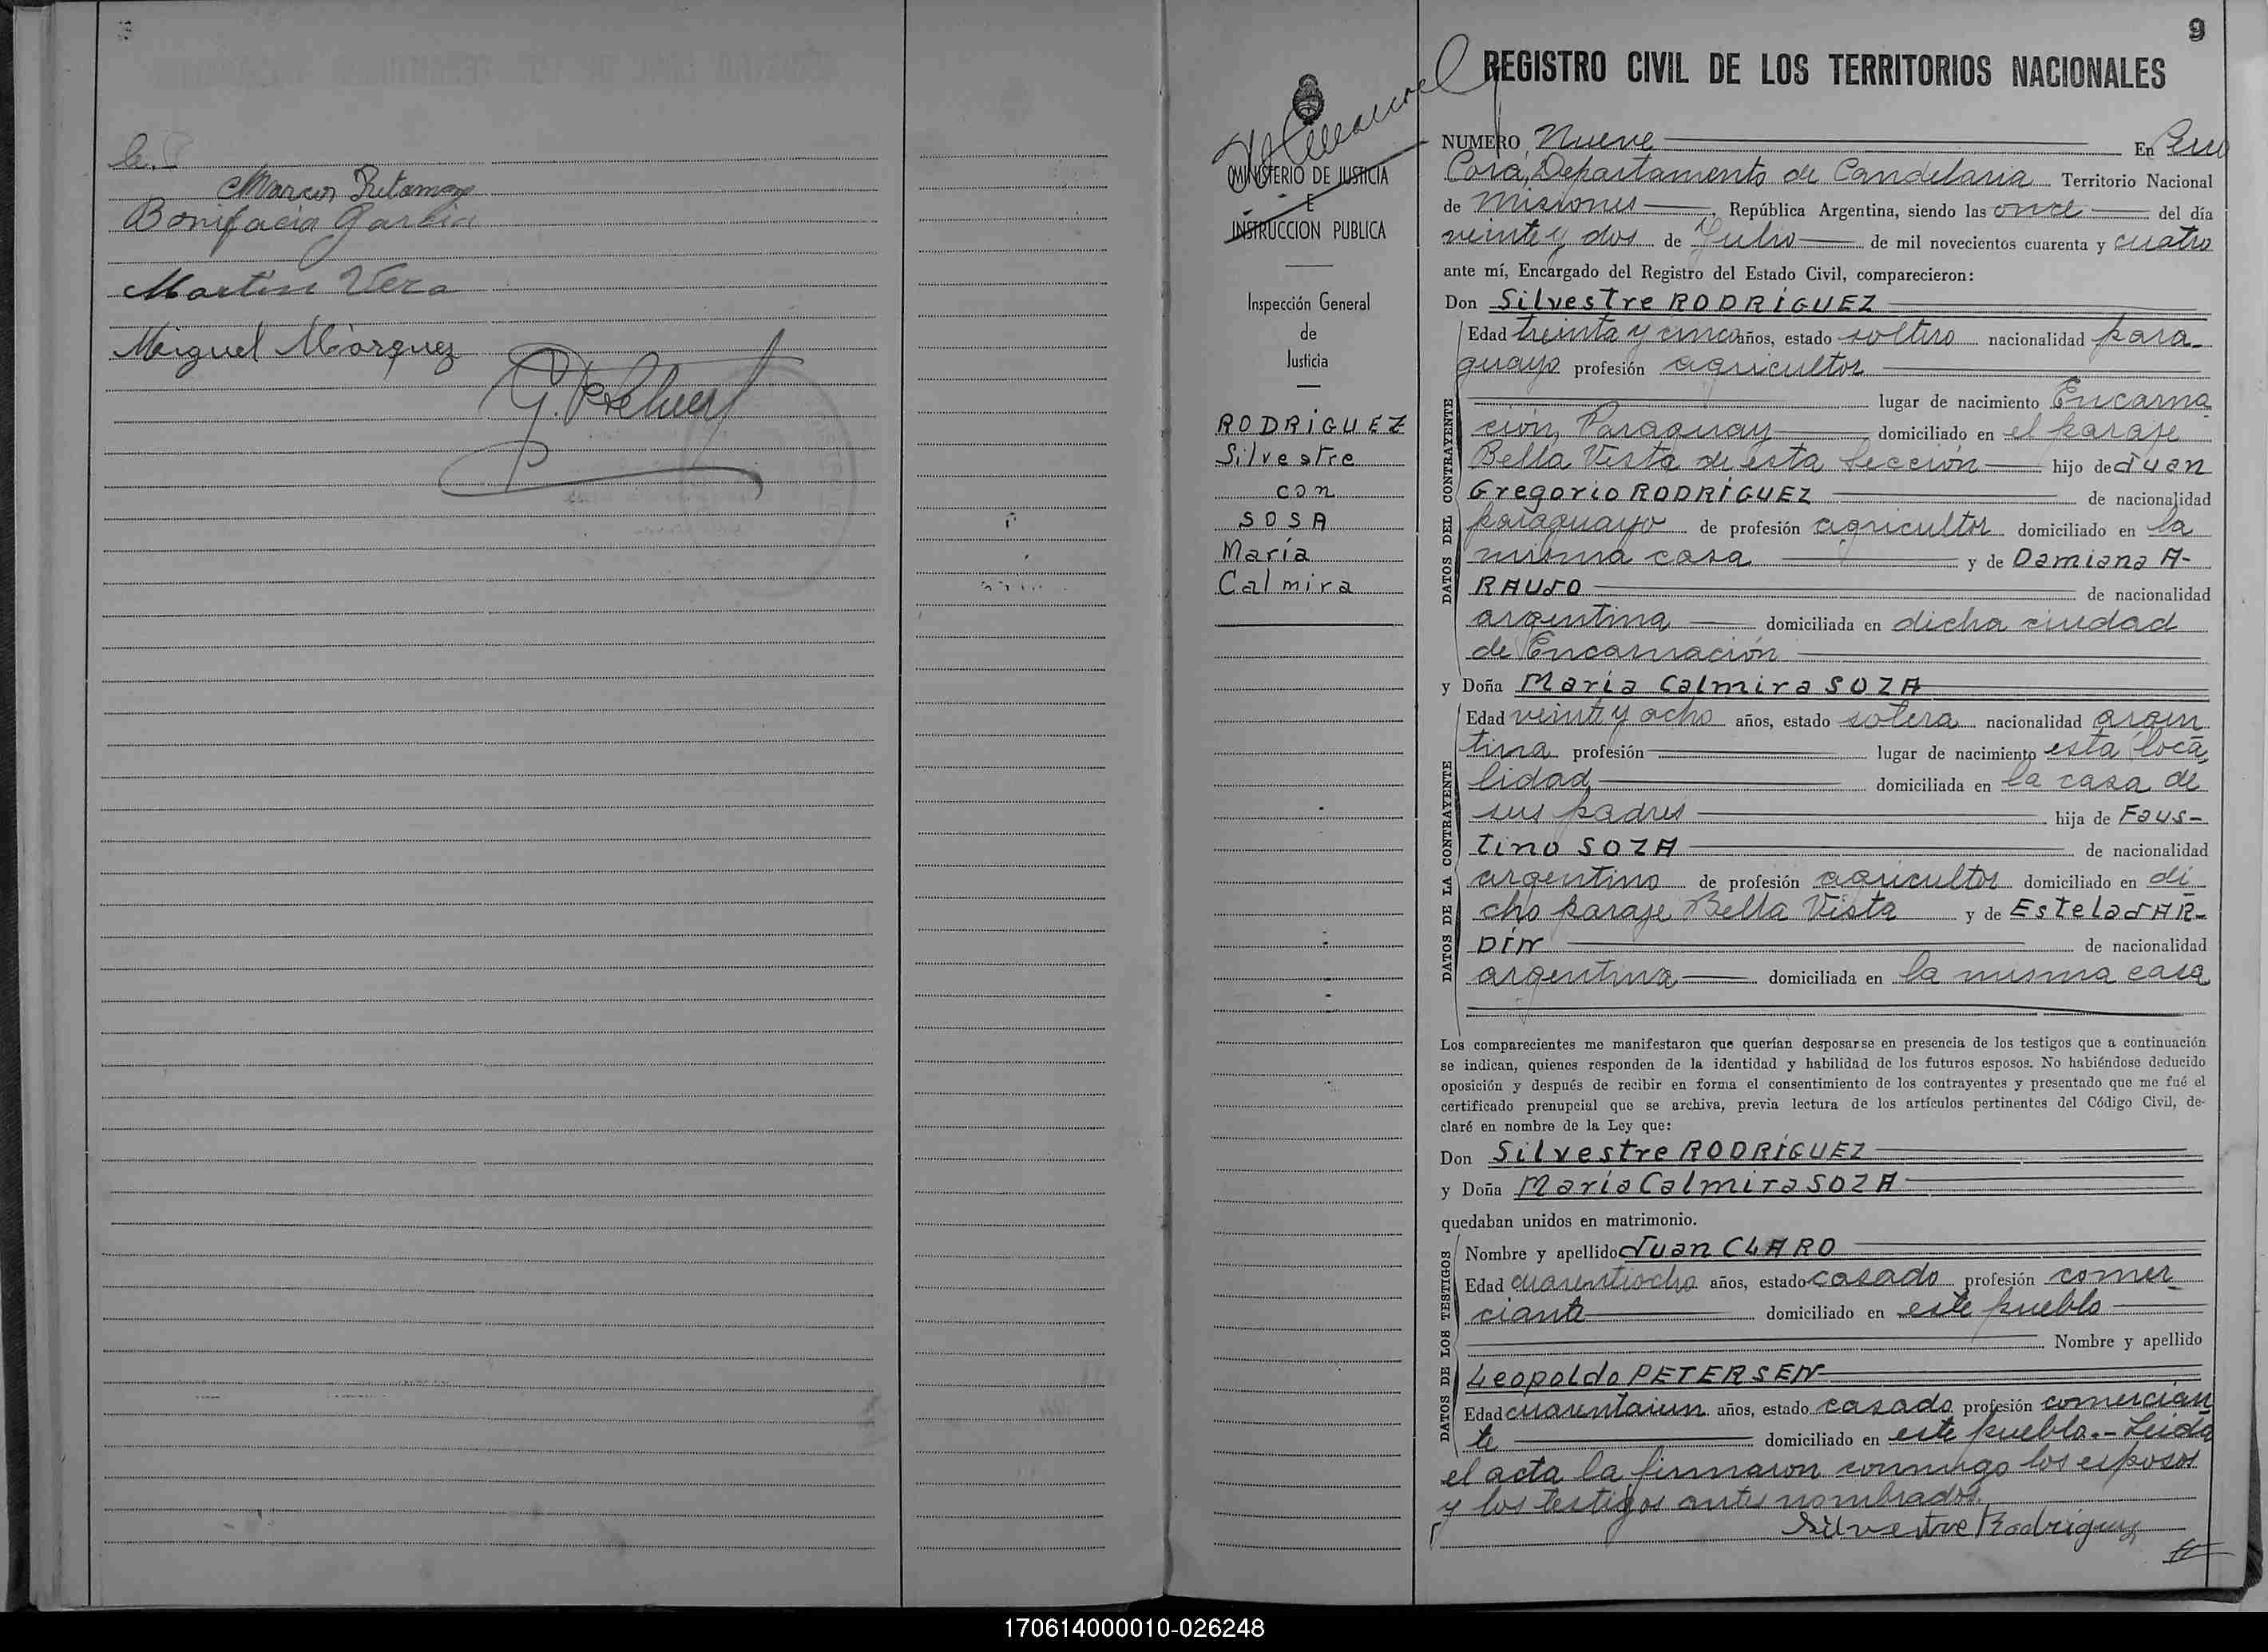 Marcos Retamozo
Bonifacia Garcia
Martin Vera
Miguel Márquez
9
REGISTRO CIVIL DE LOS TERRITORIOS NACIONALES
MINISTERIO DE JUSTICIA
E
INSTRUCCION PUBLICA
Inspección General
de
Justicia
RODRÍGUEZ
Silvestre
con
SOSA
María
Calmira
NUMERO Nueve En Cerro
Corá, Departamento de Candelaria Territorio Nacional
de Misiones, República Argentina, siendo las once del día
veinte y dos de Julio de mil novecientos cuarenta y cuatro
ante mí, Encargado del Registro del Estado Civil, comparecieron:
Don Silvestre RODRÍGUEZ
Edad treinta y cinco años, estado soltero nacionalidad para-
guayo profesión agricultor
lugar de nacimiento Encarna
ción, Paraguay domiciliado en el paraje
Bella Vista de esta Sección hijo de Juan
Gregorio RODRÍGUEZ de nacionalidad
paraguayo de profesión agricultor domiciliado en la
misma casa y de Damiana A-
RAUJO de nacionalidad
argentina domiciliada en dicha ciudad
de Encarnación
y Doña María Calmira SOZA
Edad veinte y ocho años, estado soltera nacionalidad argen
tina profesión lugar de nacimiento esta loca
lidad domiciliada en la casa de
sus padres hija de Faus-
tino SOZA de nacionalidad
argentino de profesión agricultor domiciliado en di
cho paraje Bella Vista y de Estela JAR-
DÍN de nacionalidad
argentina domiciliada en la misma casa
Los comparecientes me manifestaron que querían desposarse en presencia de los testigos que a continuación
se indican, quienes responden de la identidad y habilidad de los futuros esposos. No habiéndose deducido
oposición y después de recibir en forma el consentimiento de los contrayentes y presentado que me fué el
certificado prenupcial que se archiva, previa lectura de los artículos pertinentes del Código Civil, de-
claré en nombre de la Ley que:
Don Silvestre RODRÍGUEZ
y Doña María Calmira SOZA
quedaban unidos en matrimonio.
Nombre y apellido Juan CLARO
Edad cuarentiocho años, estado casado profesión comer
ciante domiciliado en este pueblo
Nombre y apellido
Leopoldo PETERSEN
Edad cuarentaiun años, estado casado profesión comercian
te domiciliado en este pueblo.- Leida
el acta la firmaron conmigo los esposos
y los testigos antes nombrados.
Silvestre Rodriguez
DATOS DEL CONTRAYENTE
DATOS DE LA CONTRAYENTE
DATOS DE LOS TESTIGOS
170614000010-026248